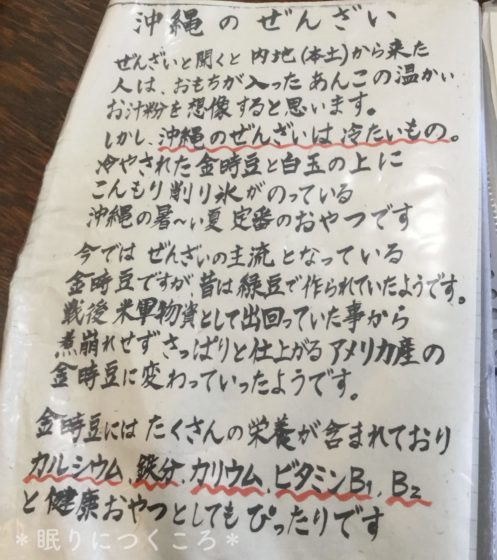 沖縄のぜんざい
ぜんざいと聞くと内地(本土)から来た
人は、おもちが入ったあんこの温かい
お汁粉を想像すると思います。
しかし、沖縄のぜんざいは冷たいもの。
冷やされた金時豆と白玉の上に
こんもり削り氷がのっている
沖縄の暑〜い夏定番のおやつです
今ではぜんざいの主流となっている
金時豆ですが、昔は緑豆で作られていたようです。
戦後米軍物資として出回っていた事から
煮崩れせずさっぱりと仕上がるアメリカ産の
金時豆に変わっていったようです。
金時豆にはたくさんの栄養が含まれており
カルシウム、鉄分、カリウム、ビタミンB1、B2
と健康おやつとしてもぴったりです
*眠りにつくころ*